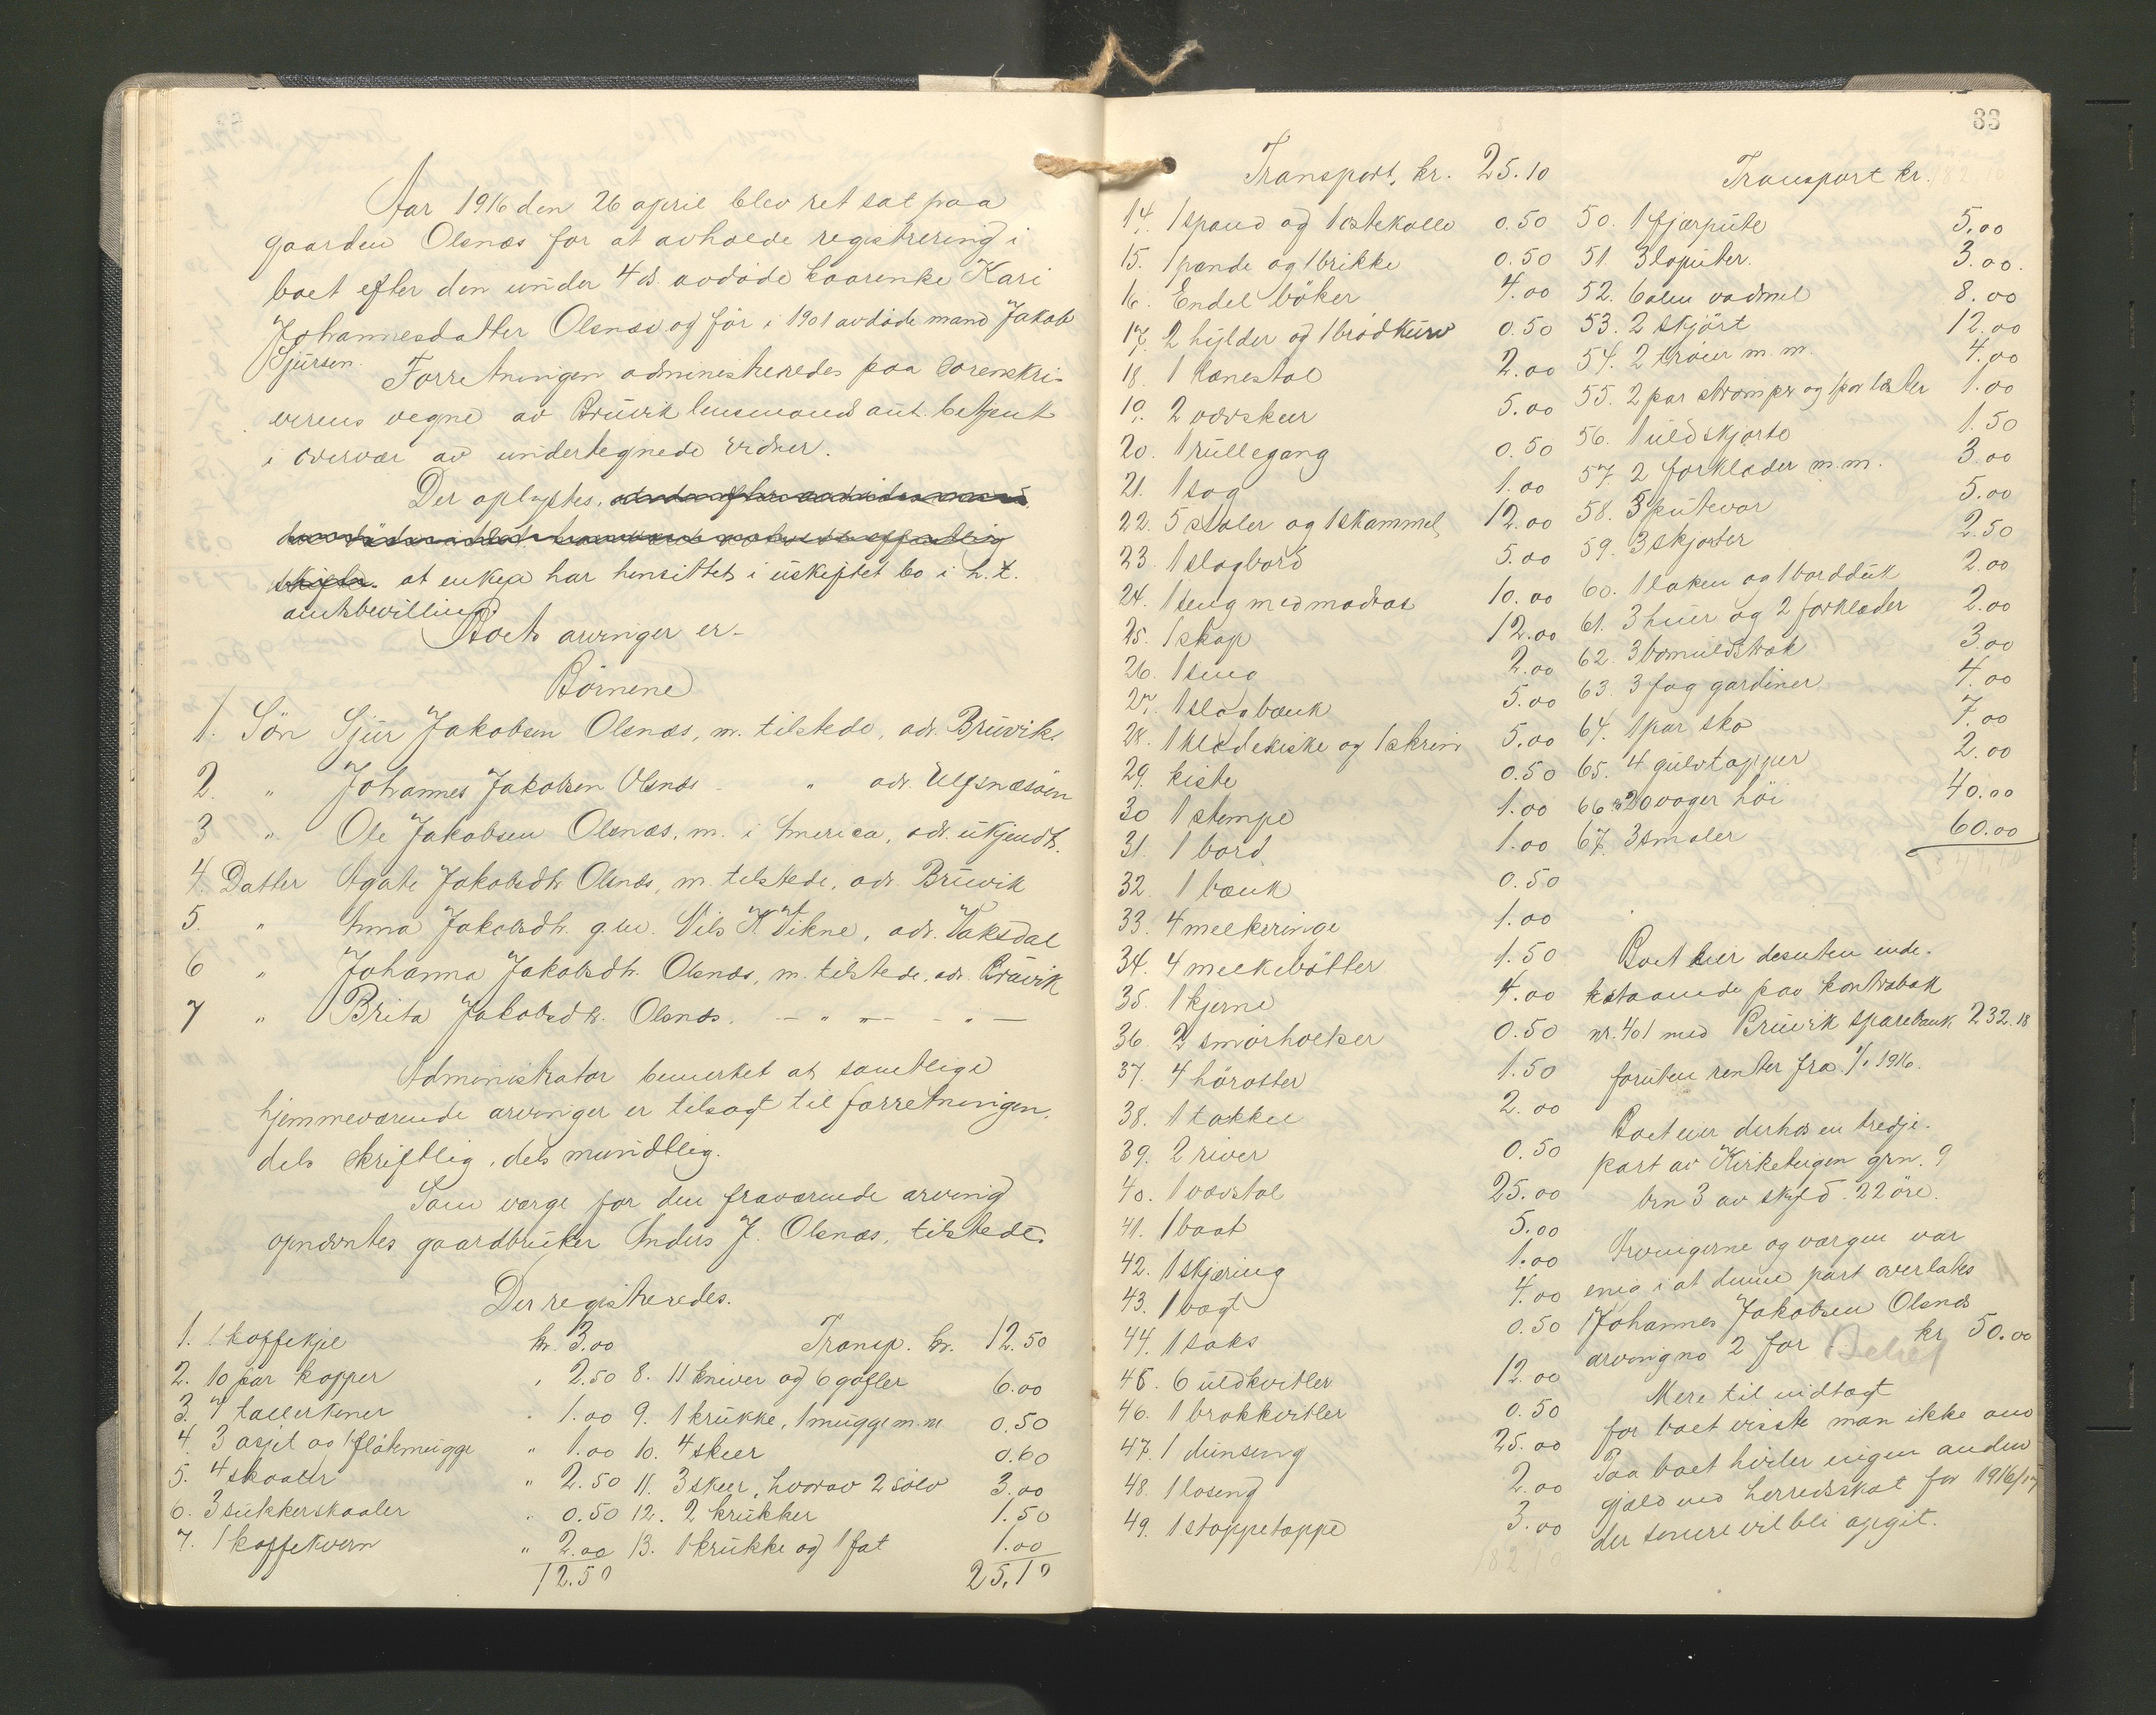 Aar 1916 den 26 april blev ret sat paa
gaarden Olsnæs for at avholde registrering i
boet efter den under 4 ds. avdøde kaarenke Kari
Johannesdatter Olsnæs og før i 1901 avdøde mand Jakob
Sjursen.
Forretningen administreredes paa sorenskri-
verens vegne av Bruvik lensmands aut. betjent
i overvær av undertegnede vidner.
Der oplystes,
at enken har hensittet i uskiftet bo i h. t.
amtsbevilling.
Boets arvinger er
Børnene
1. Søn Sjur Jakobsen Olsnæs, m. tilstede, adr. Bruvik.
2. " Johannes Jakobsen Olsnæs " adr. Ulfsnæsøen
3 " Ole Jakobsen Olsnæs, m. i America, adr. ukjendt.
4. Datter Agate Jakobsdtr. Olsnæs, m. tilstede, adr. Bruvik
5. " Anna Jakobsdtr. g. m. Nils K. Vikne, adr. Vaksdal
6 " Johanna Jakobsdtr. Olsnæs, m. tilstede, adr. Bruvik
7 " Brita Jakobsdtr. Olsnæs. — " — — " —
Administrator bemerket at samtlige
hjemmeværende arvinger er tilsagt til forretningen,
dels skriftlig, dels mundtlig.
Som verge for den fraværende arving
opnævntes gaardbruker Anders J. Olsnæs, tilstede.
Der registreredes.
1. 1 kaffekjel kr. 3.00
2. 10 par kopper " 2.50
3. 7 tallerkener " 1.00
4. 3 asjet og 1 fløtemugge " 1.00
5. 4 skaaler " 2.50
6. 3 sukkerskaaler " 0.50
7. 1 kaffekvern " 2.00
12.50
Transp. kr. 12.50
8. 11 kniver og 6 gafler 6.00
9. 1 krukke, 1 mugge m. m. 0.50
10. 4 skeer 0.60
11. 3 skeer, hvorav 2 sølv 3.00
12. 2 krukker 1.50
13. 1 krukke og 1 fat 1.00
25.10
33
Transport, kr. 25.10
14. 1 spand og 1 østekolle 0.50
15. 1 pande og 1 brikke 0.50
16. Endel bøker 4.00
17. 2 hylder og 1 brødkurv 0.50
18. 1 lænestol 2.00
19. 2 vævskeer 5.00
20. 1 rullegang 0.50
21. 1 sag 1.00
22. 5 stoler og 1 skammel 12.00
23. 1 slagbord 5.00
24. 1 seng med madras 10.00
25. 1 skap 12.00
26. 1 seng 2.00
27. 1 slagbænk 5.00
28. 1 klædekiste og 1 skrin 5.00
29. kiste 0.50
30 1 stampe 1.00
31. 1 bord 1.00
32. 1 bænk 0.50
33. 4 melkeringe 1.00
34. 4 melkebøtter 1.50
35. 1 kjerne 4.00
36. 2 smørholker 0.50
37. 4 hørotter 1.50
38. 1 takke 2.00
39. 2 river 0.50
40. 1 vævstol 25.00
41. 1 baat 5.00
42. 1 skjæring 1.00
43. 1 vægt 4.00
44. 1 saks 0.50
45. 6 uldkvitler 12.00
46. 1 brokkvitler 0.50
47. 1 dunseng 25.00
48. 1 loseng 2.00
49. 1 stoppetæppe 3.00
182.10
Transport kr.
50. 1 fjærpute 5.00
51. 3 loputer. 3.00.
52. 6 alen vadmel 8.00
53. 2 skjørt 12.00
54. 2 trøier m. m. 4.00
55. 2 par strømper og 1 par lester 1.00
56. 1 uldskjorte 1.50
57. 2 forklæder m. m. 3.00
58. 5 putevar 5.00
59. 3 skjorter 2.50
60. 1 laken og 1 bordduk 2.00
61. 3 huer og 2 forklæder 2.00
62. 3 bomuldstrøk 3.00
63. 3 fag gardiner 4.00
64. 1 par sko 7.00
65. 4 gulvtæpper 2.00
66. 20 voger høi 40.00
67. 3 smaler 60.00
Boet eier desuten inde-
staaende paa kontrabok
nr. 401 med Bruvik sparebank 232.18
foruten renter fra 1/1 1916.
Boet eier derhos en tredje-
part av Kirketeigen grn. 9
brn 3 av skyld 22 øre.
Arvingerne og vergen var
enig i at denne part overlates
Johannes Jakobsen Olsnæs
arving no 2 for kr. 50.00
Mere til indtægt
for boet visste man ikke av.
Paa boet hviler ingen anden
gjæld end herredsskat for 1916/17
der senere vil bli opgit.